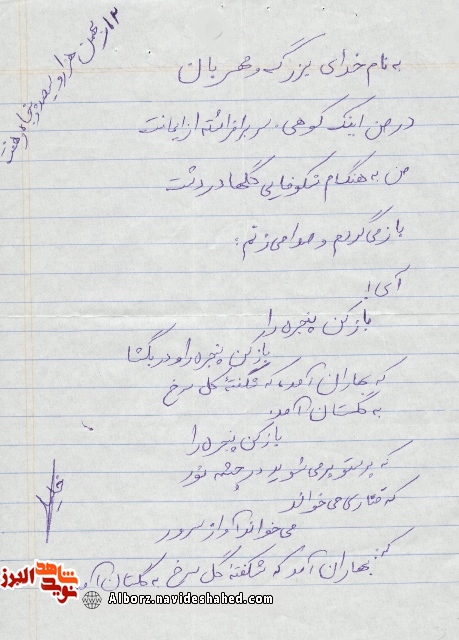 ۱۲ از بهمن هزار و سیصد و پنجاه و هفت
به نام خدای بزرگ و مهربان
در من اینک کوهی، سر برافراشته از ایمانست
من به هنگام شکوفایی گلها در دشت
باز می‌گردم و صدا می‌زنم:
آی!
باز کن پنجره را
باز کن پنجره را و در بگشا
که بهاران آمد، که شکفته گل سرخ
به گلستان آمد.
باز کن پنجره را
که پرستو پر می‌شوید در چشمه نور
که قناری می‌خواند
می‌خواند آواز سرور
که: بهاران آمد که شکفته گل سرخ به گلستان آمد
نوید شاهد البرز
Alborz.navideshahed.com